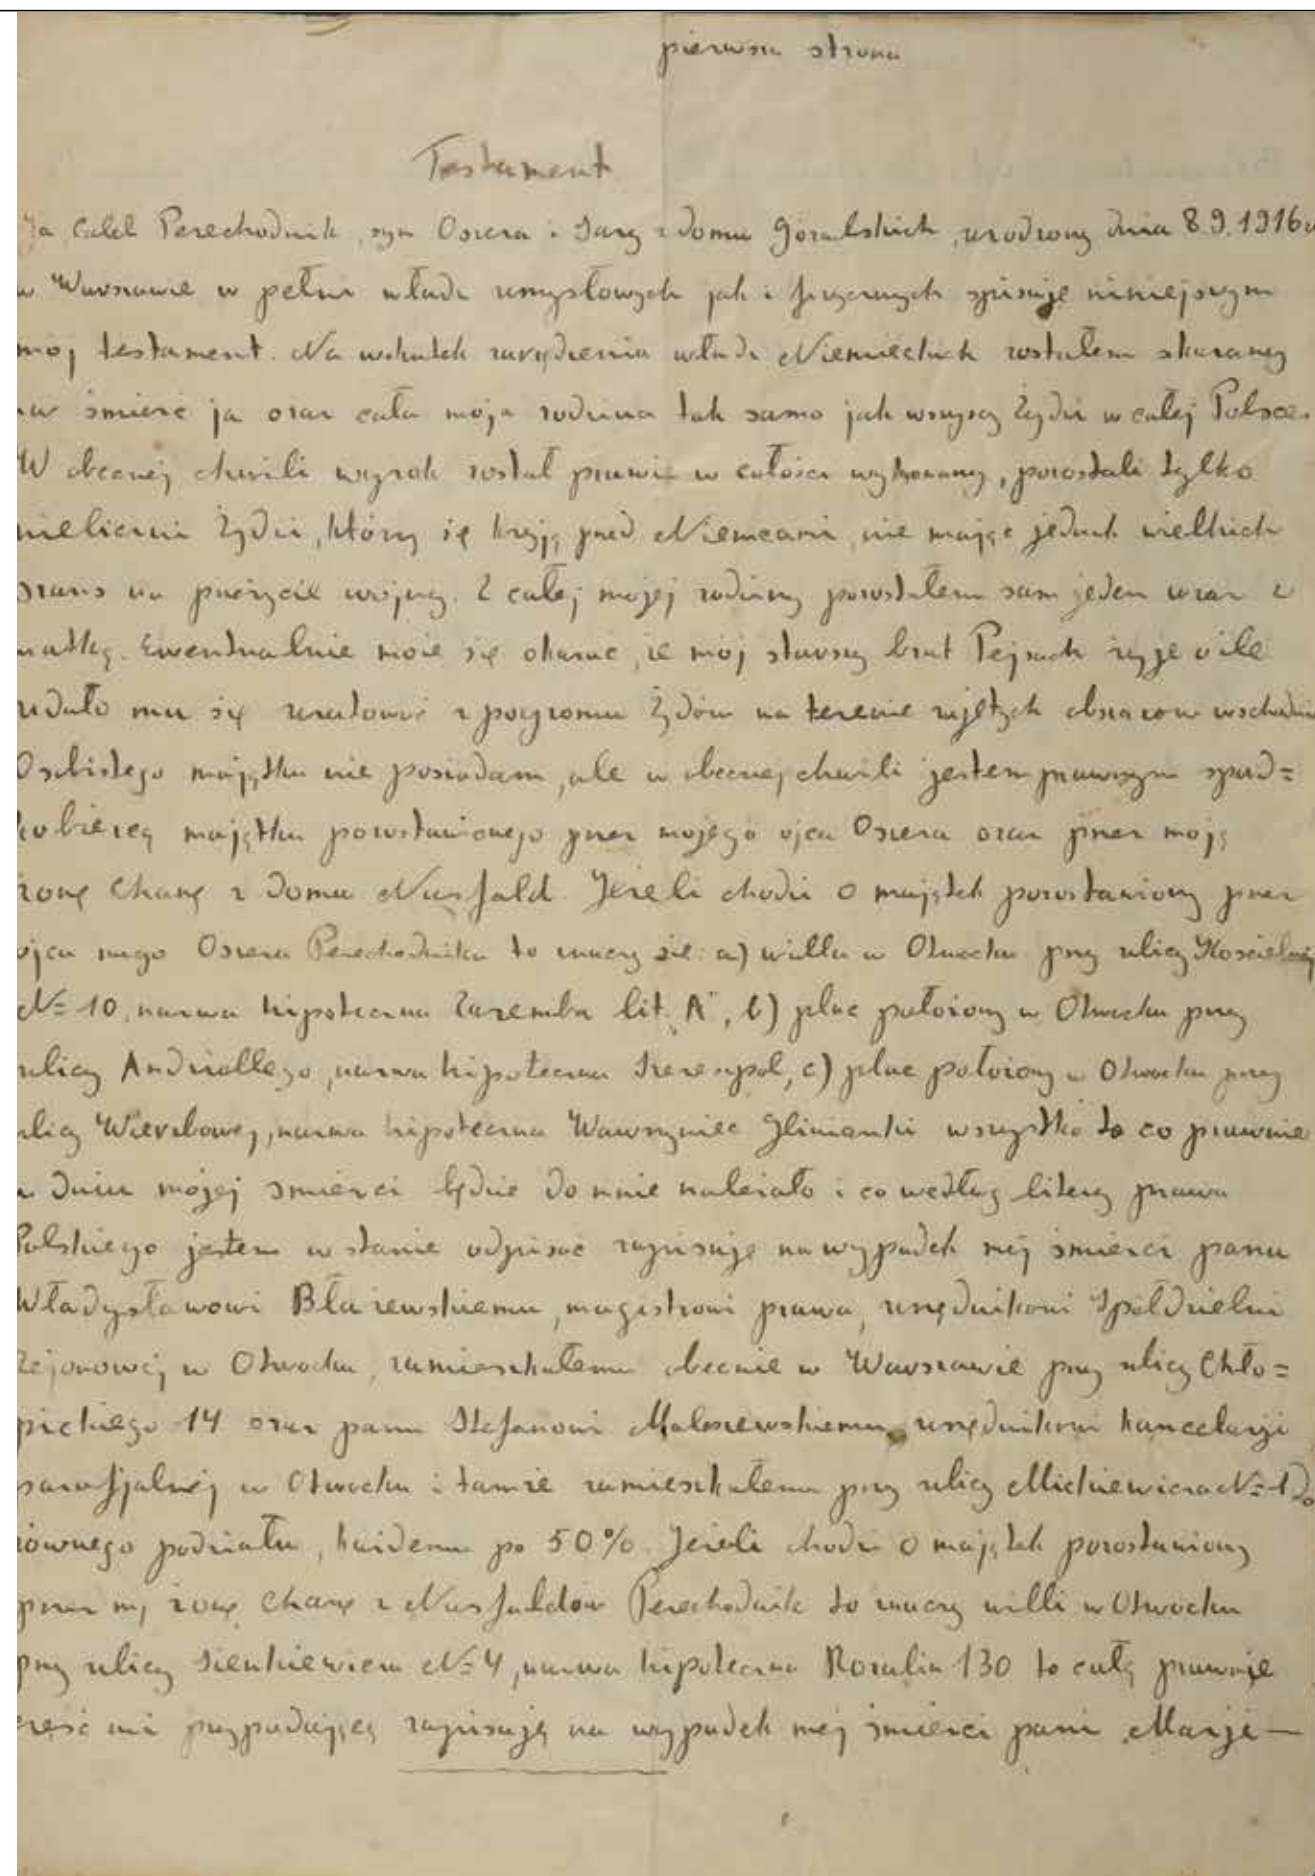 pierwsza strona
Testament
Ja Calel Perechodnik, syn Oszera i Sary z domu Góralskich, urodzony dnia 8.9.1916r
w Warszawie w pełni władz umysłowych jak i fizycznych spisuję niniejszym
mój testament. Na wskutek zarządzenia władz Niemieckich zostałem skazany
na śmierć ja oraz cała moja rodzina tak samo jak wszyscy Żydzi w całej Polsce.
W obecnej chwili wyrok został prawie w całości wykonany, pozostali tylko
nieliczni Żydzi, którzy się kryją przed Niemcami, nie mając jednak wielkich
szans na przeżycie wojny. Z całej mojej rodziny pozostałem sam jeden wraz z
matką. Ewentualnie może się okazać, że mój starszy brat Pejsach żyje o ile
udało mu się uratować z pogromu Żydów na terenie zajętych obszarów wschodnich
Osobistego majątku nie posiadam, ale w obecnej chwili jestem prawnym spad=
kobiercą majątku pozostawionego przez mojego ojca Oszera oraz przez moją
żonę Chanę z domu Nusfeld. Jeżeli chodzi o majątek pozostawiony przez
ojca mego Oszera Perechodnika to znaczy się: a) willa w Otwocku przy ulicy Kościelnej
№ 10, nazwa hipoteczna Zaremba lit. "A", b) plac położony w Otwocku przy
ulicy Andriollego, nazwa hipoteczna Srerenpol, c) plac położony w Otwocku przy
ulicy Wierzbowej, nazwa hipoteczna Wawrzyniec Glimanki wszystko to co prawnie
w dniu mojej śmierci będzie do mnie należało i co według litery prawa
Polskiego jestem w stanie odpisać zapisuję na wypadek mej śmierci panu
Władysławowi Błażewskiemu, magistrowi prawa, urzędnikowi Spółdzielni
Rejonowej w Otwocku, zamieszkałemu obecnie w Warszawie przy ulicy Chło=
pickiego 14 oraz panu Stefanowi Maliszewskiemu, urzędnikowi kancelarji
parafjalnej w Otwocku i tamże zamieszkałemu przy ulicy Mickiewicza № 1 do
równego podziału, każdemu po 50%. Jeżeli chodzi o majątek pozostawiony
przez mą żonę Chanę z Nusfeldów Perechodnik to znaczy willi w Otwocku
przy ulicy Sienkiewicza № 4, nazwa hipoteczna Rozalin 130 to całą prawnie
część mi przypadającą zapisuję na wypadek mej śmierci pani Marji